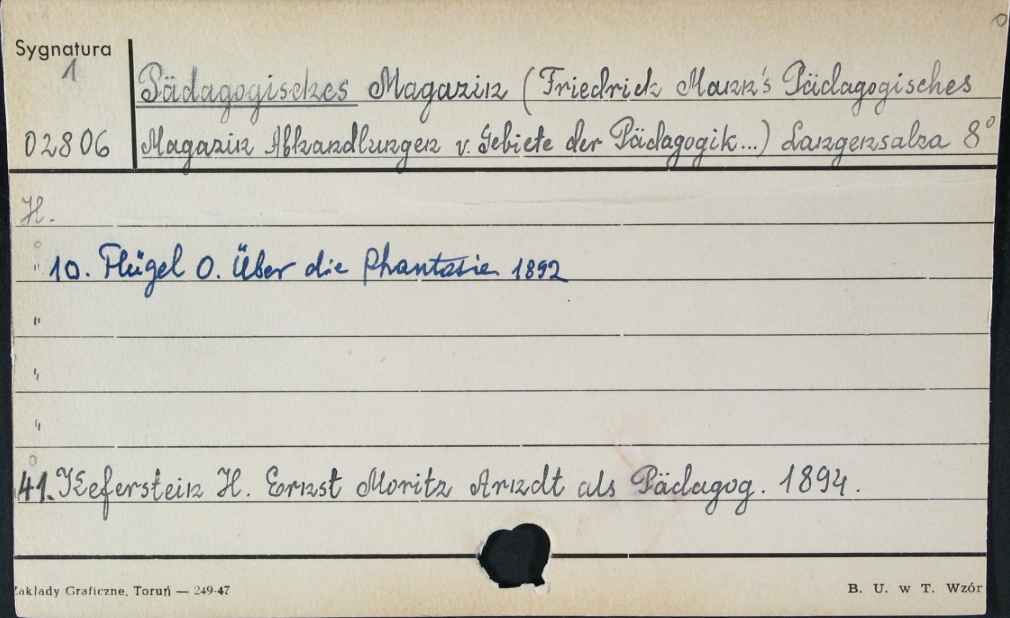 Sygnatura
1
Pädagogisches Magazin (Friedrich Mann's Pädagogisches
02806 Magazin Abhandlungen v. Gebiete der Pädagogik...) Langensalza 8°
H.
" 10. Flügel O. Über die Phantasie 1892
"
"
"
41. Keferstein H. Ernst Moritz Arndt als Pädagog. 1894.
Zakłady Graficzne, Toruń — 249-47 B. U. w T. Wzór